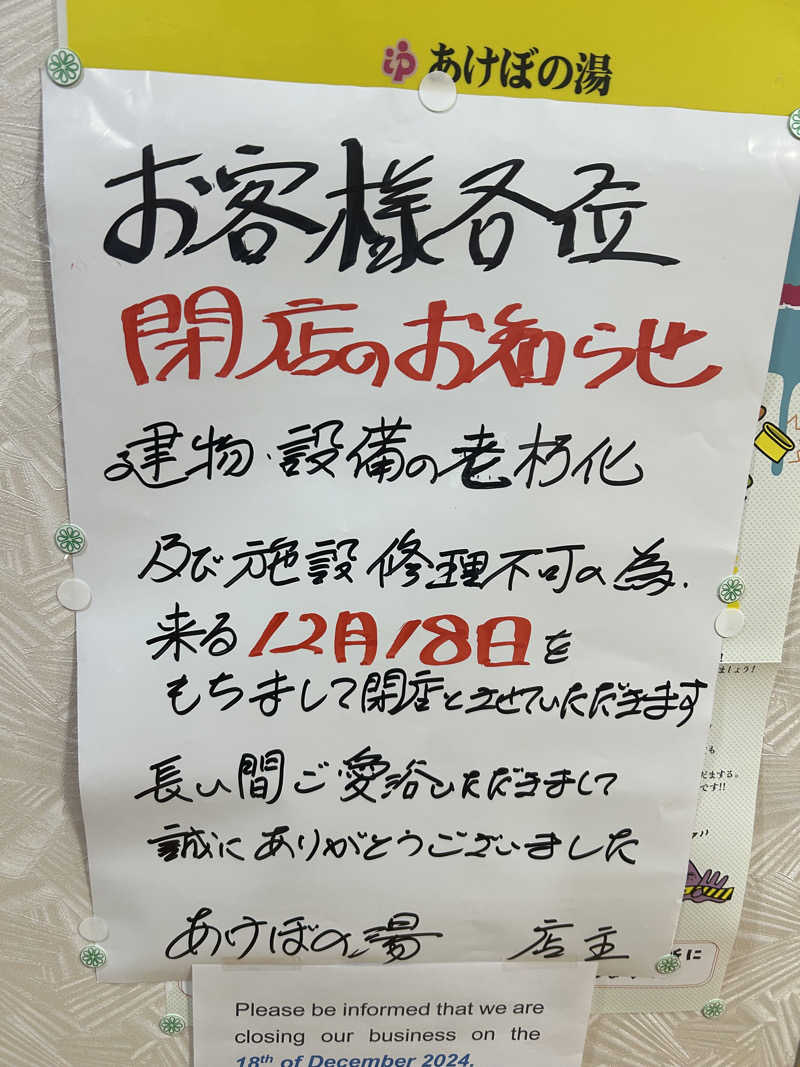 あけぼの湯
お客様各位
閉店のお知らせ
建物・設備の老朽化
及び施設修理不可の為、
来る12月18日を
もちまして閉店とさせていただきます
長い間ご愛浴いただきまして
誠にありがとうございました
あけぼの湯 店主
Please be informed that we are
closing our business on the
18th of December 2024.
ましょう!
だまする。
です!!